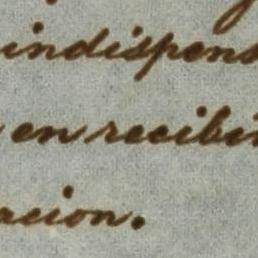 indispens
en recibi
acion.